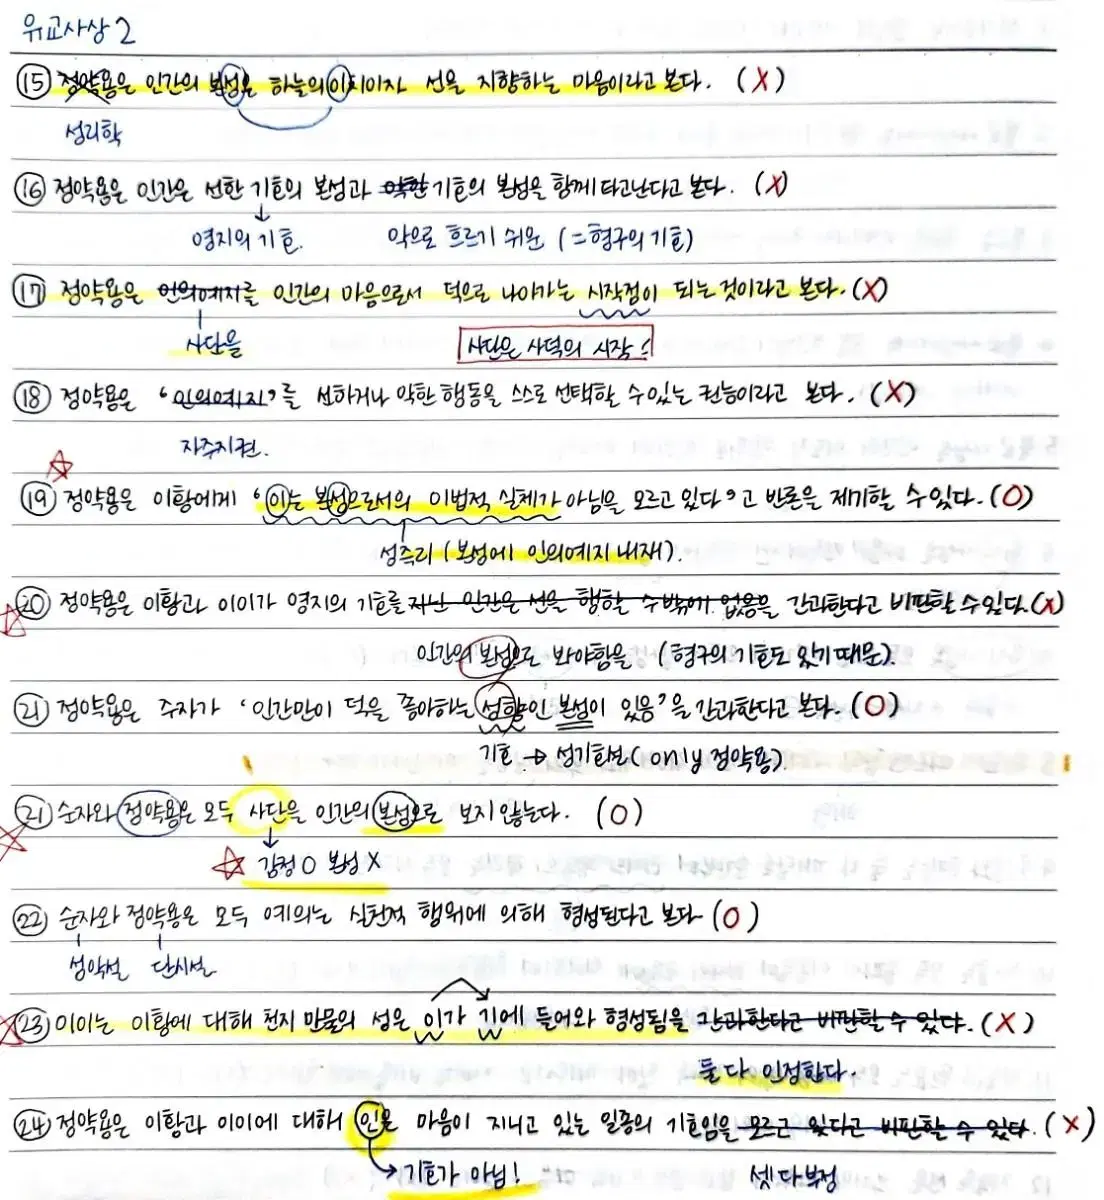 유교사상 2
⑮ 정약용은 인간의 본성은 하늘의 이치이자 선을 지향하는 마음이라고 본다. (X)
성리학
⑯ 정약용은 인간은 선한 기호의 본성과 악한 기호의 본성을 함께 타고난다고 본다. (X)
영지의 기호. 악으로 흐르기 쉬운 (=형구의 기호)
⑰ 정약용은 인의예지를 인간의 마음으로서 덕으로 나아가는 시작점이 되는 것이라고 본다. (X)
사단을 사단은 사덕의 시작!
⑱ 정약용은 '인의예지'를 선하거나 악한 행동을 스스로 선택할 수 있는 권능이라고 본다. (X)
자주지권.
⑲ 정약용은 이황에게 '이는 본성으로서의 이법적 실체가 아님을 모르고 있다'고 반론을 제기할 수 있다. (O)
성즉리 (본성에 인의예지 내재).
⑳ 정약용은 이황과 이이가 영지의 기호를 지닌 인간은 선을 행할 수밖에 없음을 간과한다고 비판할 수 있다. (X)
인간의 본성으로 봐야함을 (형구의 기호도 있기 때문).
㉑ 정약용은 주자가 '인간만이 덕을 좋아하는 성향인 본성이 있음'을 간과한다고 본다. (O)
기호 → 성기호설 (only 정약용).
㉑ 순자와 정약용은 모두 사단을 인간의 본성으로 보지 않는다. (O)
감정 O 본성 X
㉒ 순자와 정약용은 모두 예의는 실천적 행위에 의해 형성된다고 본다 (O)
성악설 단시설
㉓ 이이는 이황에 대해 천지 만물의 성은 이가 기에 들어와 형성됨을 간과한다고 비판할 수 있다. (X)
둘 다 인정한다.
㉔ 정약용은 이황과 이이에 대해 인은 마음이 지니고 있는 일종의 기호임을 모르고 있다고 비판할 수 있다. (X)
기호가 아님! 셋 다 부정